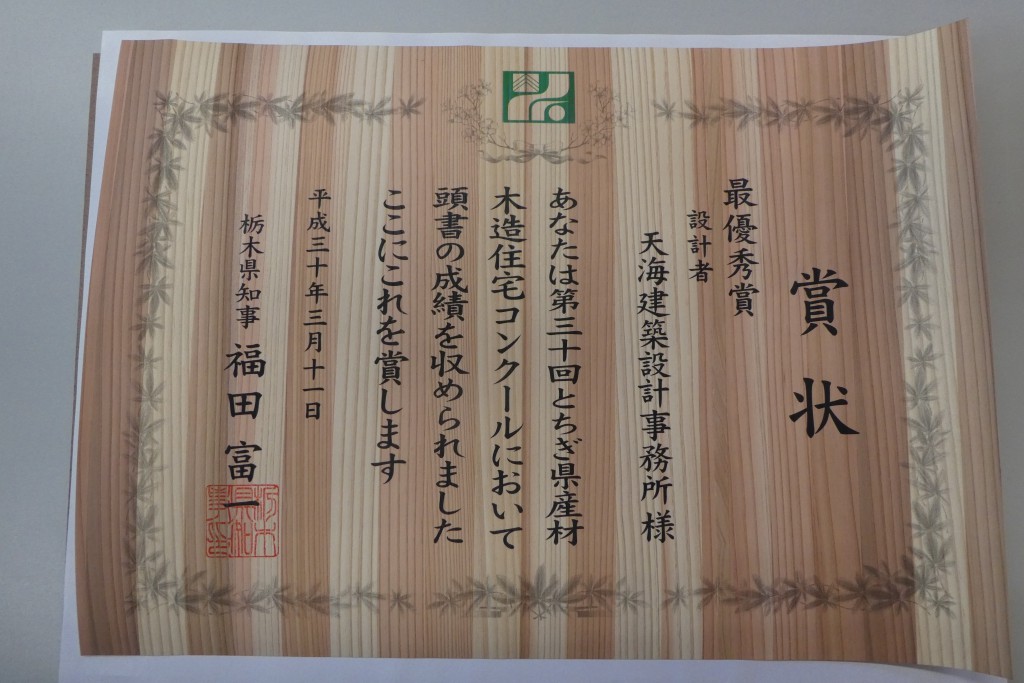 賞状
最優秀賞
設計者
天海建築設計事務所様
あなたは第三十回とちぎ県産材
木造住宅コンクールにおいて
頭書の成績を収められました
ここにこれを賞します
平成三十年三月十一日
栃木県知事 福田富一
栃木県知事之印